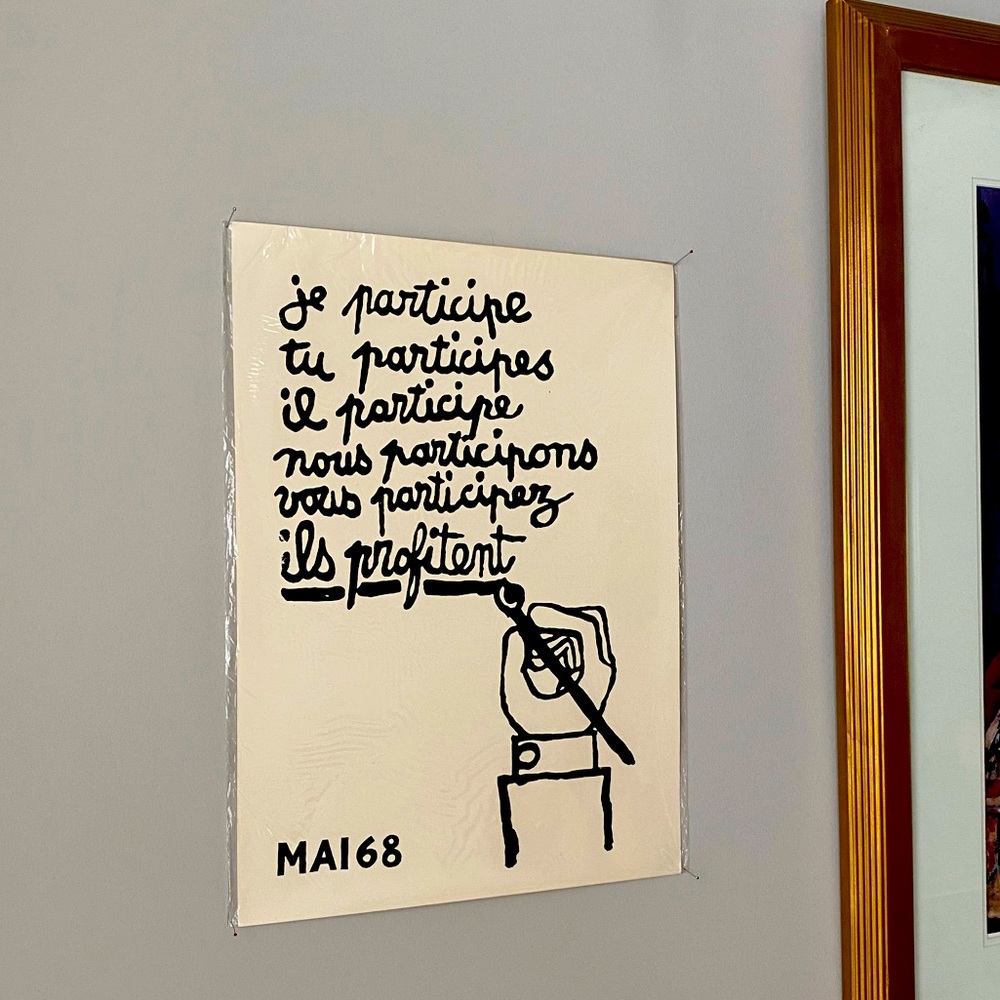 je participe
tu participes
il participe
nous participons
vous participez
ils profitent
MAI 68